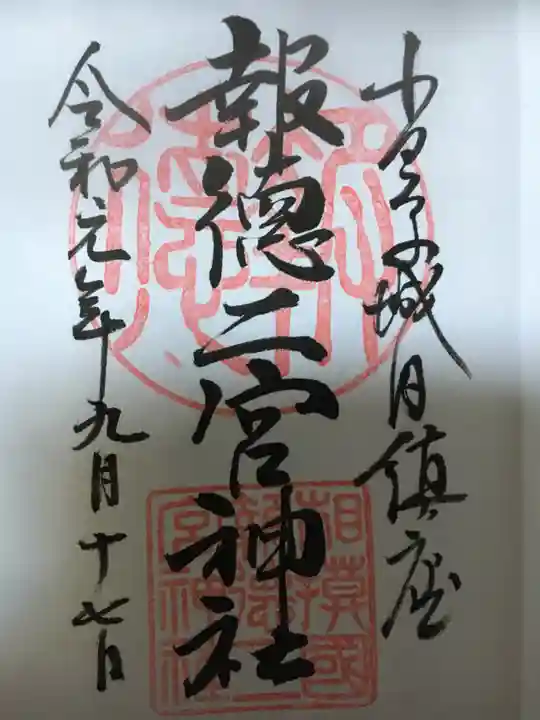 小田原城内鎮座
報徳二宮神社
令和元年九月十七日
相模國
報徳二
宮神社